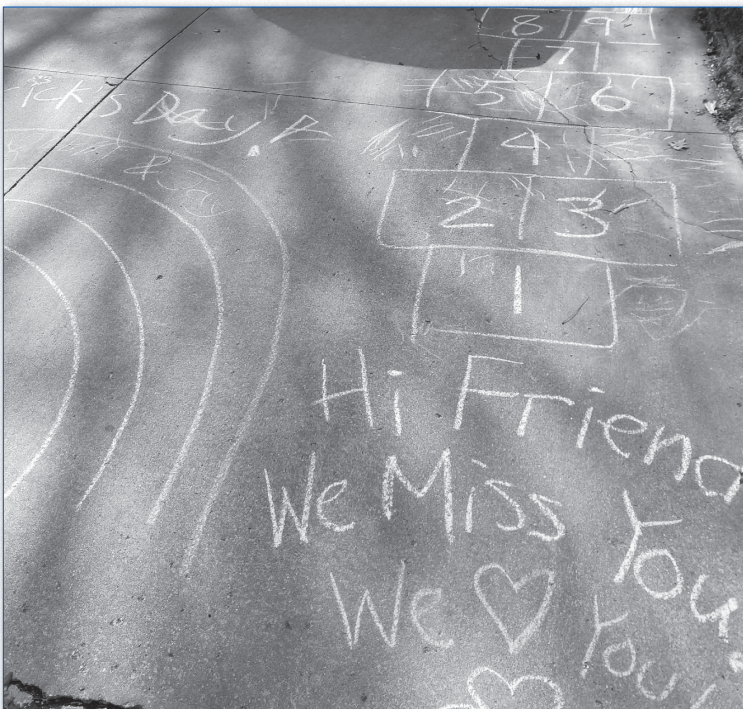 8 9
7
5 6
ick's Day!
4
2 3
1
Hi Friend
We Miss You
We ♥ You!